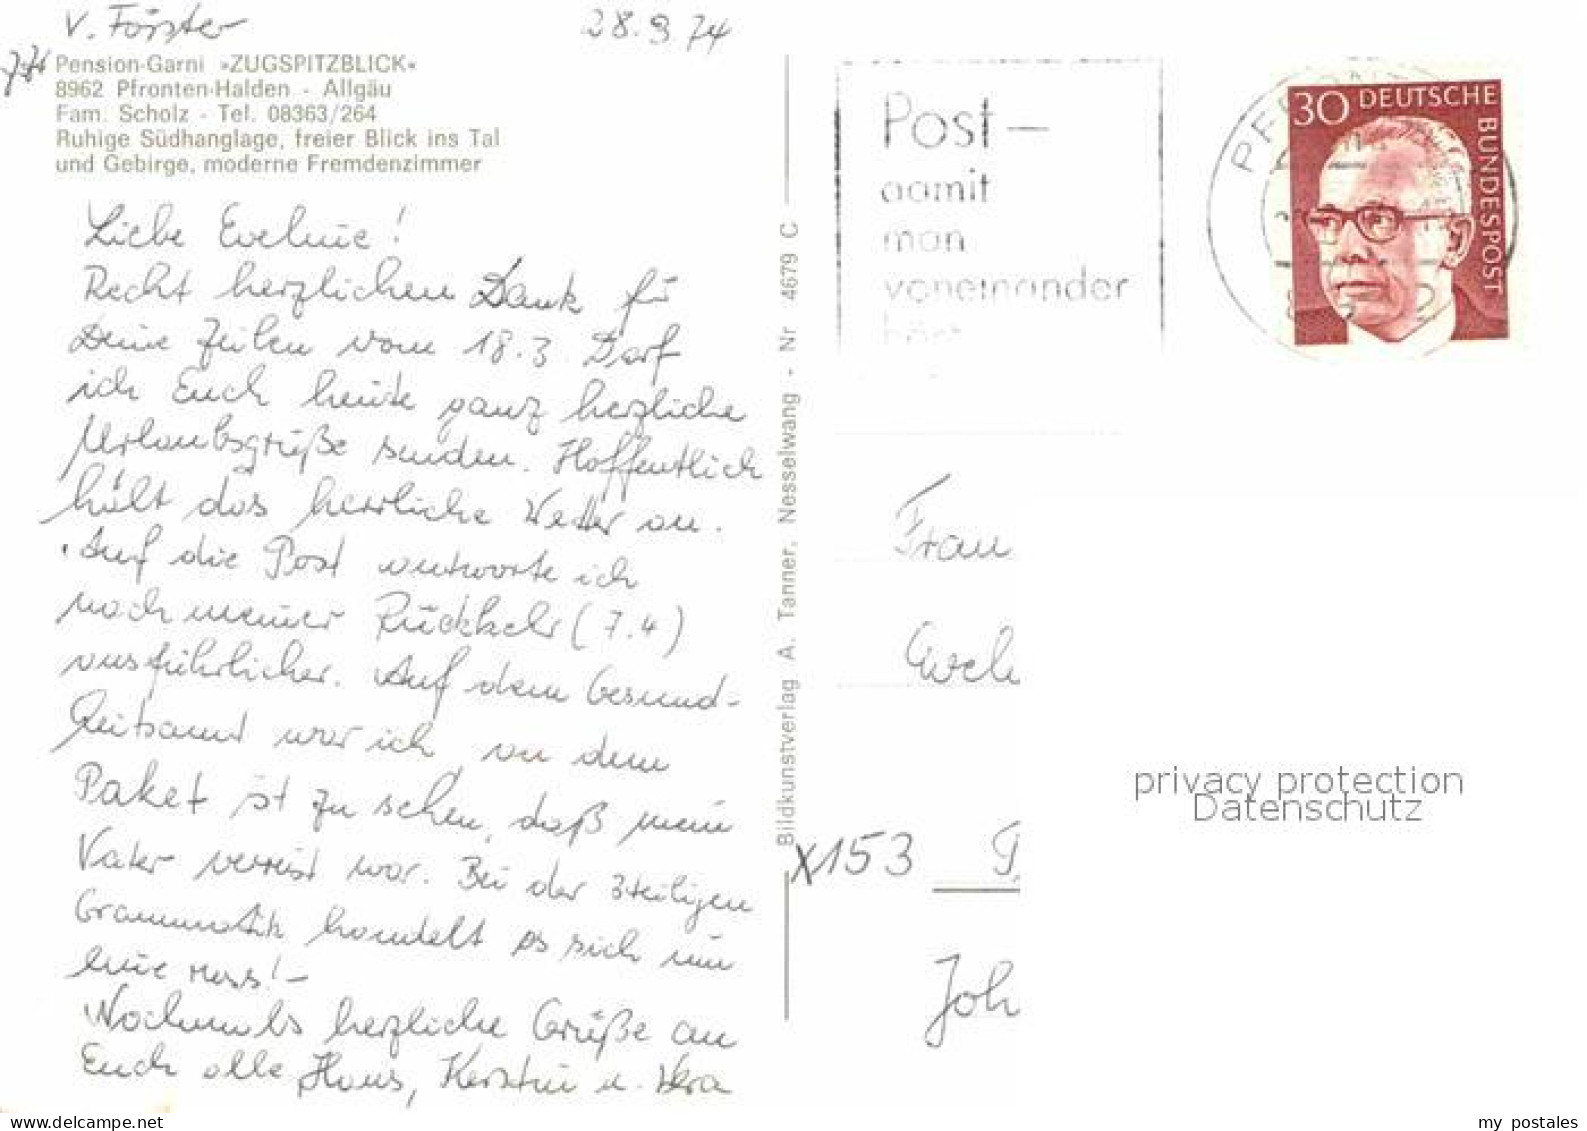 v. Förster
28.3.74
Pension-Garni »ZUGSPITZBLICK«
8962 Pfronten-Halden - Allgäu
Fam. Scholz - Tel. 08363/264
Ruhige Südhanglage, freier Blick ins Tal
und Gebirge, moderne Fremdenzimmer
Liebe Eveline!
Recht herzlichen Dank für
Deine Zeilen vom 18.3. Darf
ich Euch heute ganz herzliche
Urlaubsgrüße senden. Hoffentlich
hält das herrliche Wetter an.
Auf die Post antworte ich
nach meiner Rückkehr (7.4)
ausführlicher. Auf dem Gesund-
heitsamt war ich, an dem
Paket ist zu sehen, daß mein
Vater verreist war. Bei der 3teiligen
Grammatik handelt es sich um
eine russ!-
Nochmals herzliche Grüße an
Euch alle Hans, Kerstin u. Vera
Bildkunstverlag A. Tanner, Nesselwang - Nr 4679 C
Post-
damit
man
voneinander
hört
30 DEUTSCHE
BUNDESPOST
Frau
Evel
X153
Joh
privacy protection
Datenschutz
www.delcampe.net
my postales